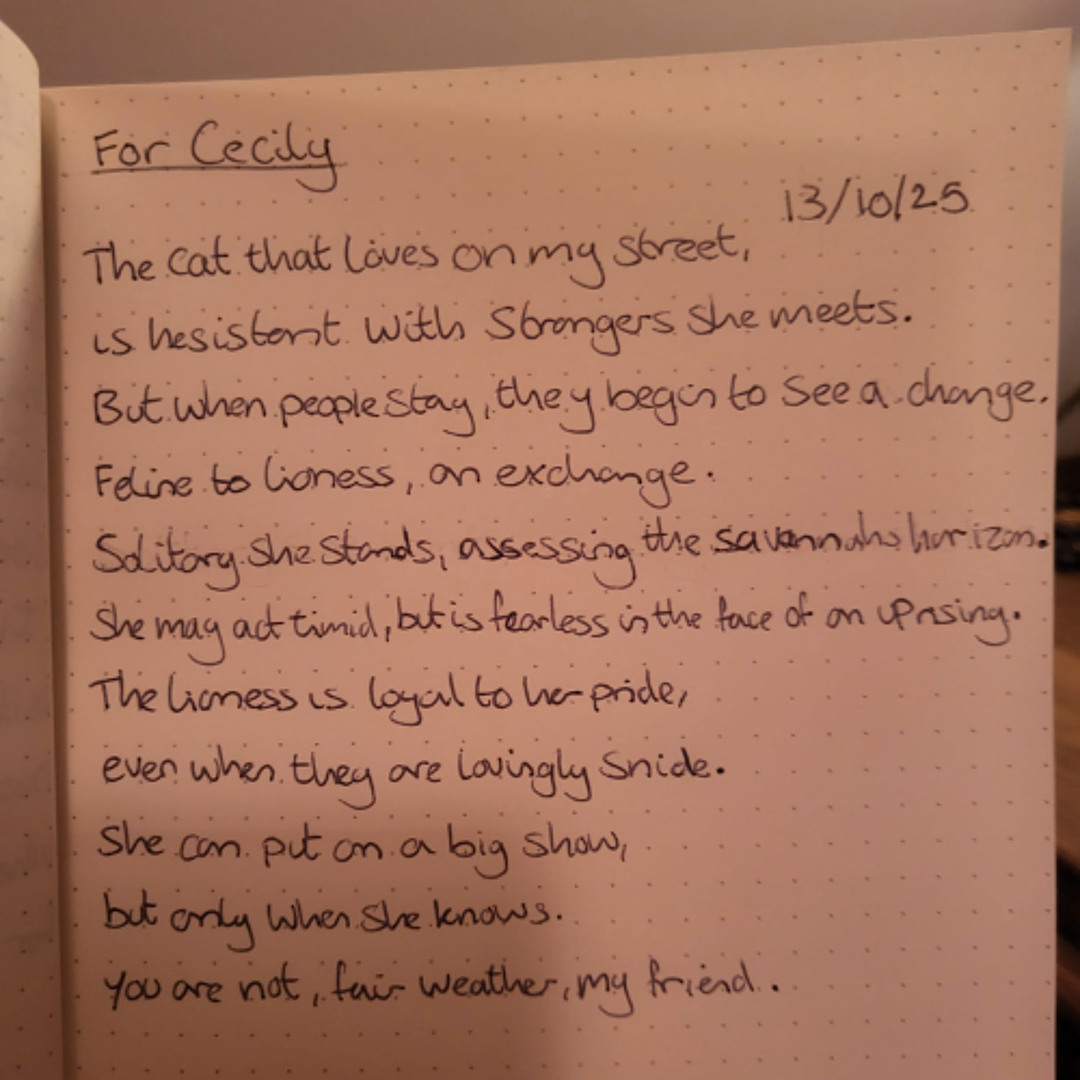 For Cecily
13/10/25
The cat that loves on my street,
is hesistant with strangers she meets.
But when people stay, they begin to see a change.
Feline to lioness, an exchange.
Solitary she stands, assessing the savannahs horizon.
She may act timid, but is fearless in the face of an uprising.
The lioness is loyal to her pride,
even when they are lovingly snide.
She can put on a big show,
but only when she knows.
You are not, fair weather, my friend.